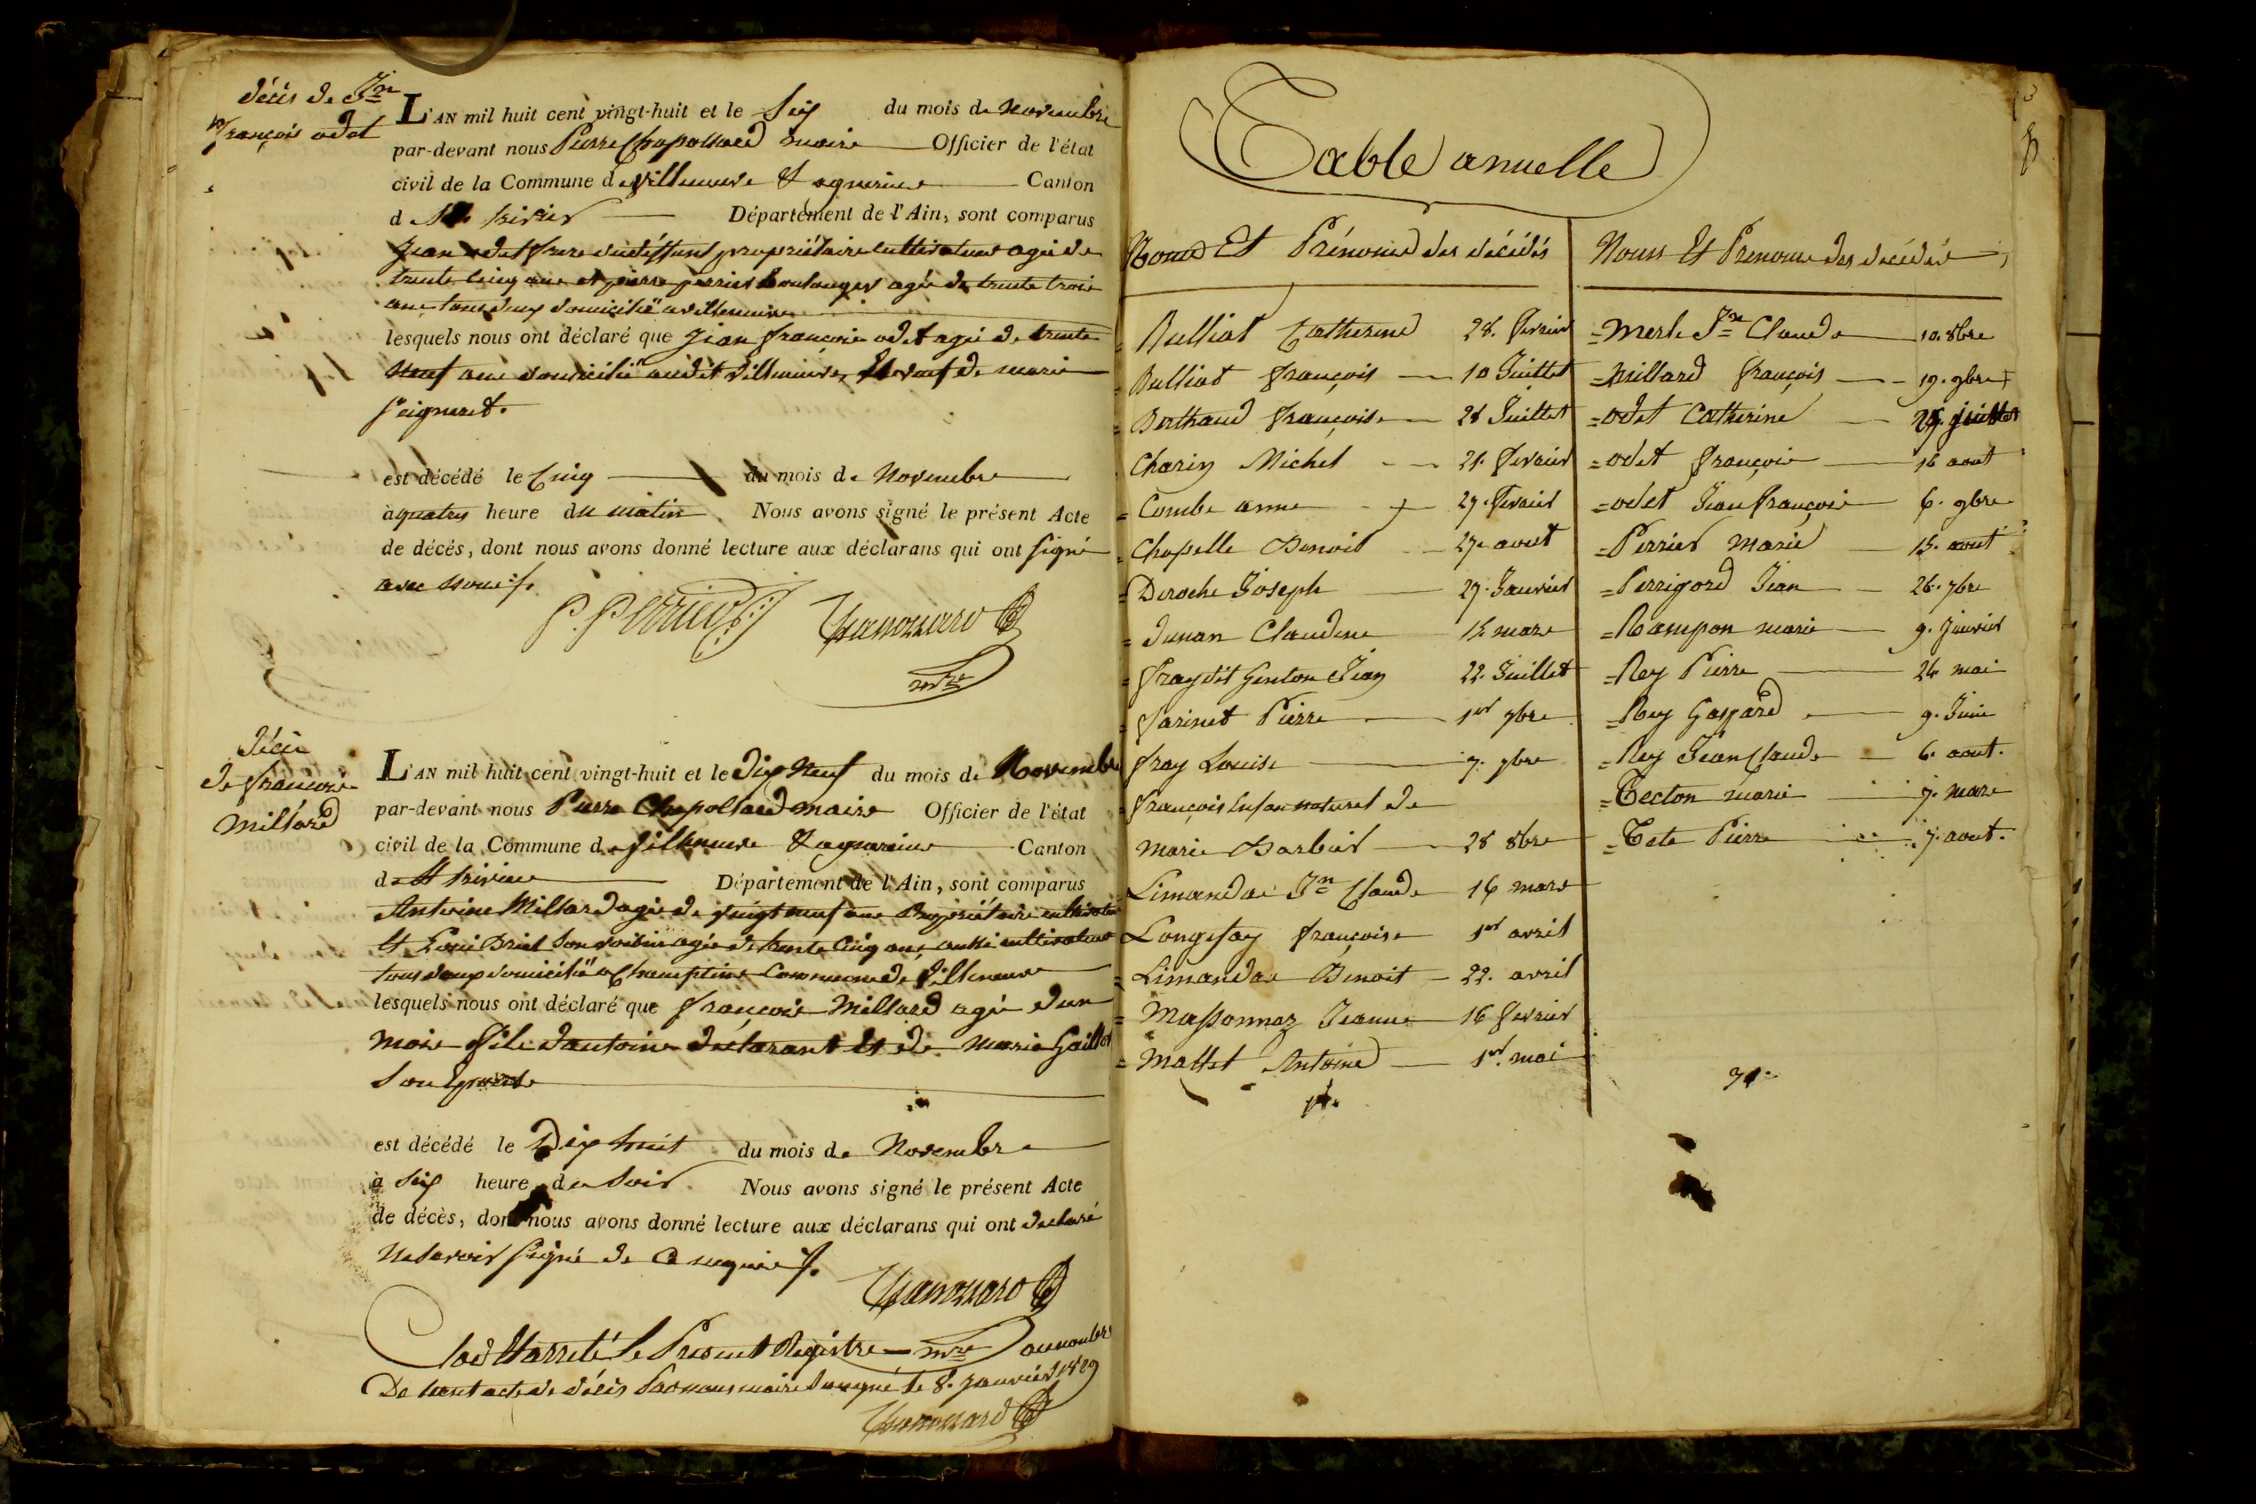 décès de Jn
françois odet
L'AN mil huit cent vingt-huit et le Six du mois de Novembre
par-devant nous Pierre Chapolnard maire Officier de l'état
civil de la Commune de Villeneuve & agnereine Canton
de St trivier Département de l'Ain, sont comparus
Jean odet frere du déffunt propriétaire cultivateur agé de
trente cinq ans et pierre perrier boulanger agé de trente trois
ans tous deux domicilié a villeneuve
lesquels nous ont déclaré que Jean françois odet agé de trente
Neuf ans domicilié audit Villeneuve, Et veuf de marie
Seigneret.
est décédé le Cinq du mois de Novembre
à quatre heure du matin. Nous avons signé le présent Acte
de décès, dont nous avons donné lecture aux déclarans qui ont signé
avec nous
P. Perrier
mre
Décès
de françois
Millard
L'AN mil huit cent vingt-huit et le Dix Neuf du mois de Novembre
par-devant nous Pierre Chapolnard maire Officier de l'état
civil de la Commune de Villeneuve & agnereine Canton
de St trivier Département de l'Ain, sont comparus
Antoine Millard agé de vingt neuf ans Propriétaire cultivateur
Et Louis Briel Son voisin agé de trente Cinq ans aussi cultivateur
tous deux domicilié a Champtine Commune de Villeneuve
lesquels nous ont déclaré que françois Millard agé d'un
mois fils d'antoine déclarant Et de marie Gaillot
Son Epouse
est décédé le Dix huit du mois de Novembre
à Six heure du Soir. Nous avons signé le présent Acte
de décès, dont nous avons donné lecture aux déclarans qui ont declaré
Ne Savoir Signé de Ce requis
Clos Et arreté le Present Registre mre au nombre
De trent acte de décès Par nous maire Soussigné le 8. Janvier 1829
Table annuelle
Noms Et Prénoms des décédés
Bulliat Catherine 28. fevrier
Bulliat françois 10 Juillet
Berthaud françoise 28 Juillet
Charin Michel 21. fevrier
Combe anne 27. fevrier
Chapelle Benoit 27. aout
Deroche Joseph 27. Janvier
Dunan Claudine 15. mars
fray dit Genton Jean 22. Juillet
farinet Pierre 1er 7bre
fray Louise 7. 7bre
françois Enfan naturel de
Marie Barbier 28 8bre
Limandas Jn Claude 16 mars
Longefay françoise 1er avril
Limandas Benoit 22. avril
Massonnaz Jeanne 16 fevrier
Mallet Antoine 1er mai
Noms Et Prenoms des décédés
Merle Jn Claude 10. 8bre
Millard françois 19. 9bre
odet Catherine juillet
odet françois 16 aout
odet Jean françois 6. 9bre
Perrier Marie 15. aout
Perrigord Jean 26. 7bre
Rampon marie 9. Janvier
Rey Pierre 24 mai
Rey Gaspard 9. Juin
Rey Jean Claude 6. aout.
Tecton marie 7. mars
Tete Pierre 7. aout.